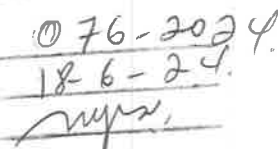 ① 76-2024.
18-6-24.